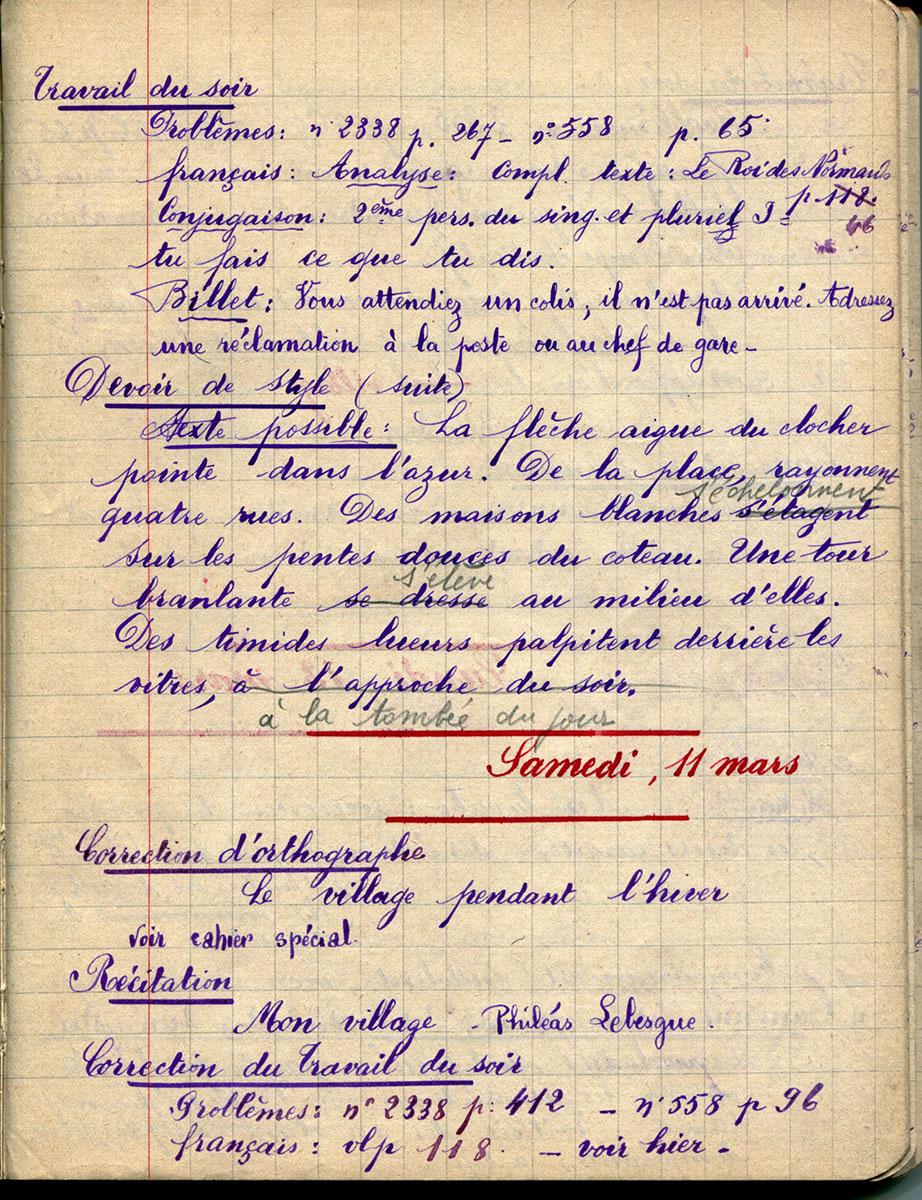 Travail du soir
Problèmes: n° 2338 p. 267 - n° 558 p. 65
français: Analyse: Compl. texte: Le Roi des Normands
p 118.
Conjugaison: 2ème pers. du sing. et pluriel I
46
tu fais ce que tu dis.
Billet: Vous attendiez un colis, il n'est pas arrivé. Adressez
une réclamation à la poste ou au chef de gare -
Devoir de style (suite)
Texte possible: La flèche aigue du clocher
pointe dans l'azur. De la place, rayonnent
s'échelonnent
quatre rues. Des maisons blanches s'étagent
sur les pentes douces du coteau. Une tour
s'élève
branlante se dresse au milieu d'elles.
Des timides lueurs palpitent derrière les
vitres, à l'approche du soir.
à la tombée du jour
Samedi, 11 mars
Correction d'orthographe
Le village pendant l'hiver
voir cahier spécial.
Récitation
Mon village - Philéas Lebesgue.
Correction du travail du soir
Problèmes: n° 2338 p. 412 - n° 558 p 96
français: p 118. - voir hier -